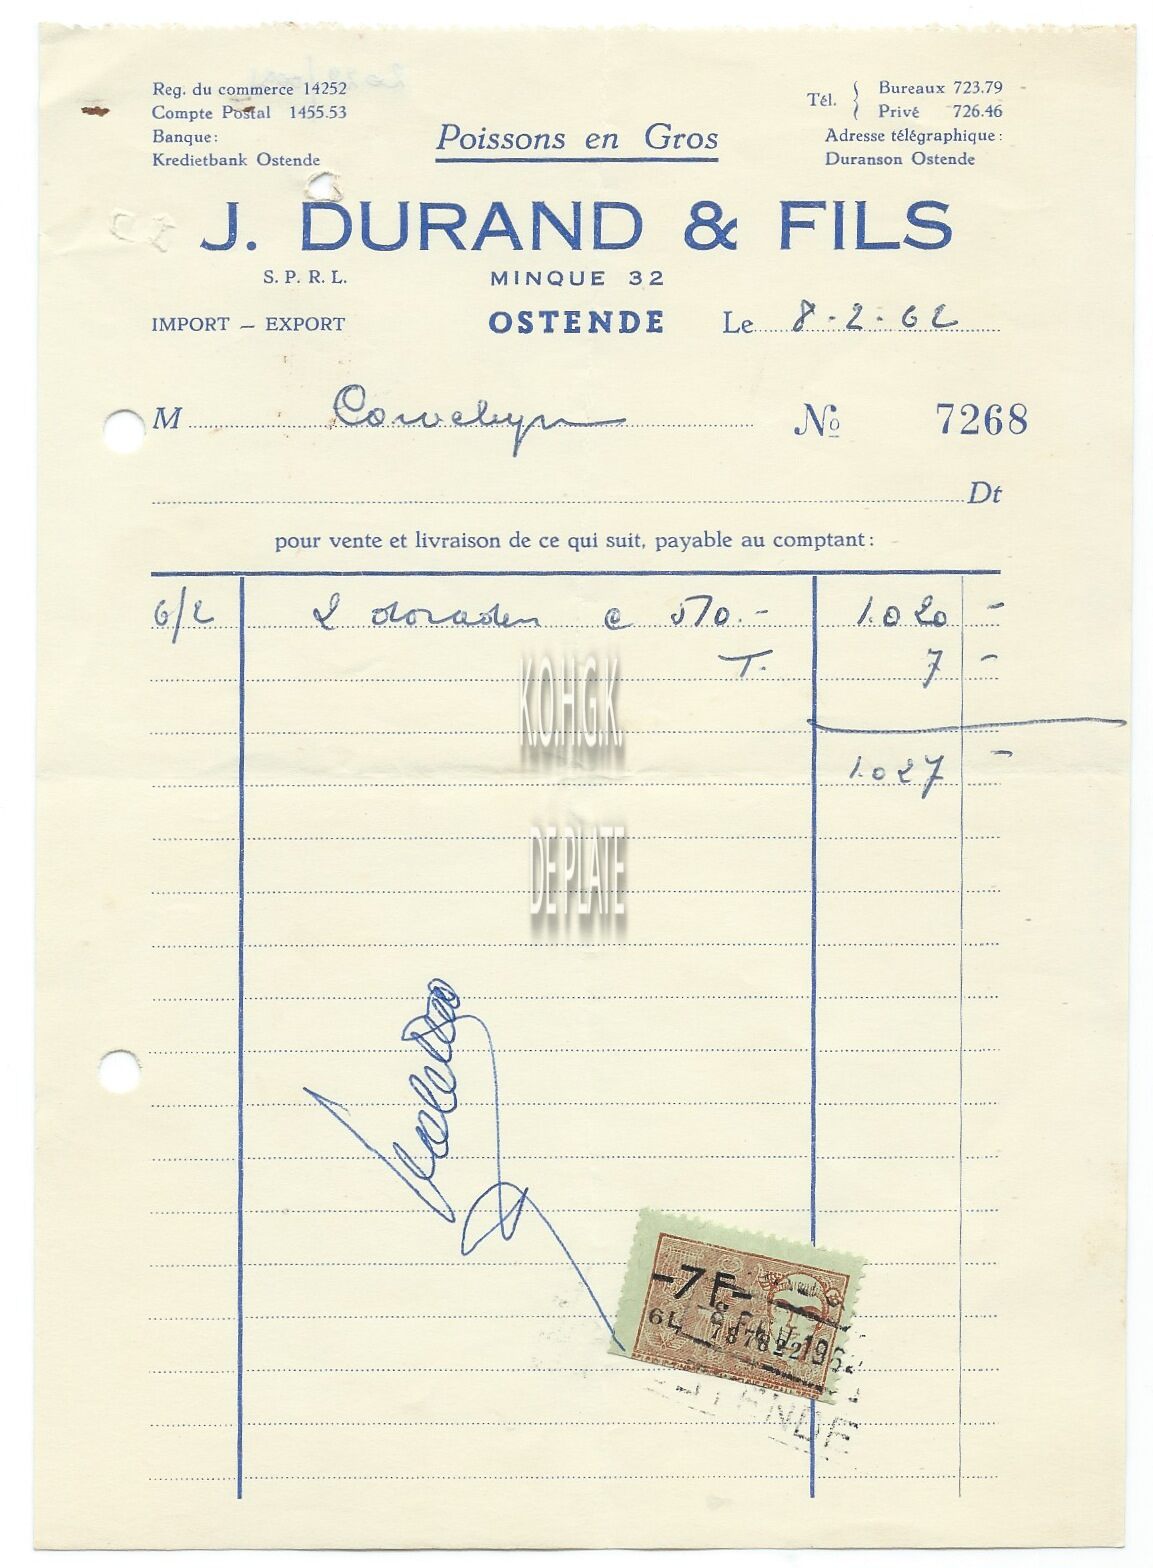 Reg. du commerce 14252
Compte Postal 1455.53
Banque:
Kredietbank Ostende
Poissons en Gros
Tél. { Bureaux 723.79
Privé 726.46
Adresse télégraphique:
Duranson Ostende
J. DURAND & FILS
S. P. R. L. MINQUE 32
IMPORT — EXPORT OSTENDE Le 8-2-62
M No 7268
Dt
pour vente et livraison de ce qui suit, payable au comptant:
6/2 2 doraden 1.020 -
T. 7 -
1.027 -
K.O.H.G.K.
DE PLATE
-7F-